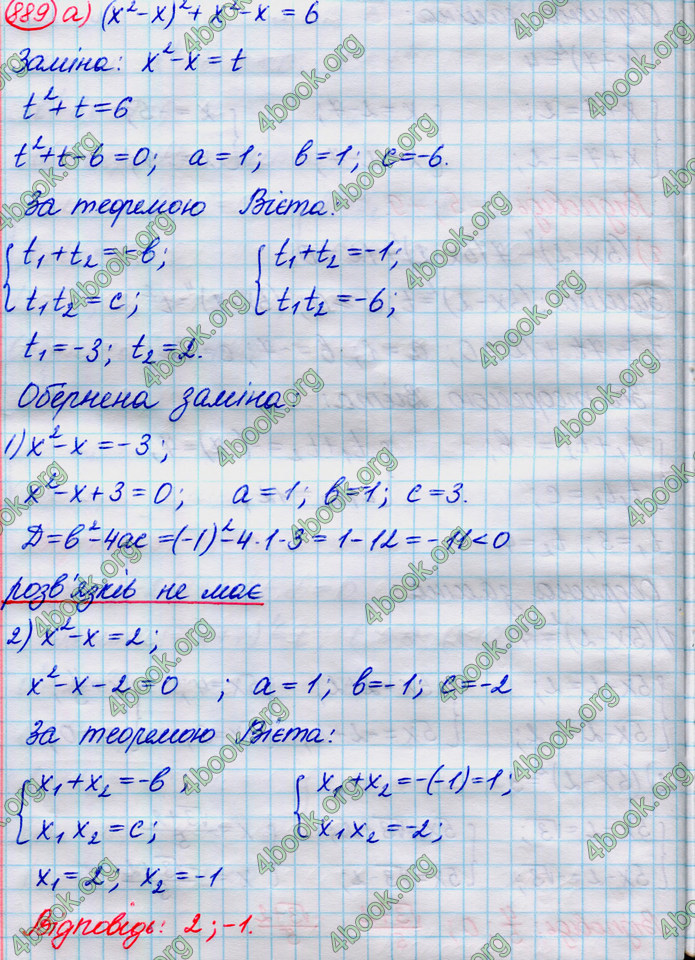 889 а) (x²-x)²+x²-x=6
Заміна: x²-x=t
t²+t=6
t²+t-6=0; a=1; в=1; c=-6.
За теоремою Вієта:
{t₁+t₂=-в; {t₁+t₂=-1;
{t₁t₂=c; {t₁t₂=-6;
t₁=-3; t₂=2.
Обернена заміна:
1) x²-x=-3;
x²-x+3=0; a=1; в=1; c=3.
Д=в²-4ac=(-1)²-4·1·3=1-12=-11<0
розв'язків не має
2) x²-x=2;
x²-x-2=0 ; a=1; в=-1; c=-2
За теоремою Вієта:
{x₁+x₂=-в; {x₁+x₂=-(-1)=1;
{x₁x₂=c; {x₁x₂=-2;
x₁=2; x₂=-1
Відповідь: 2;-1.
4book.org